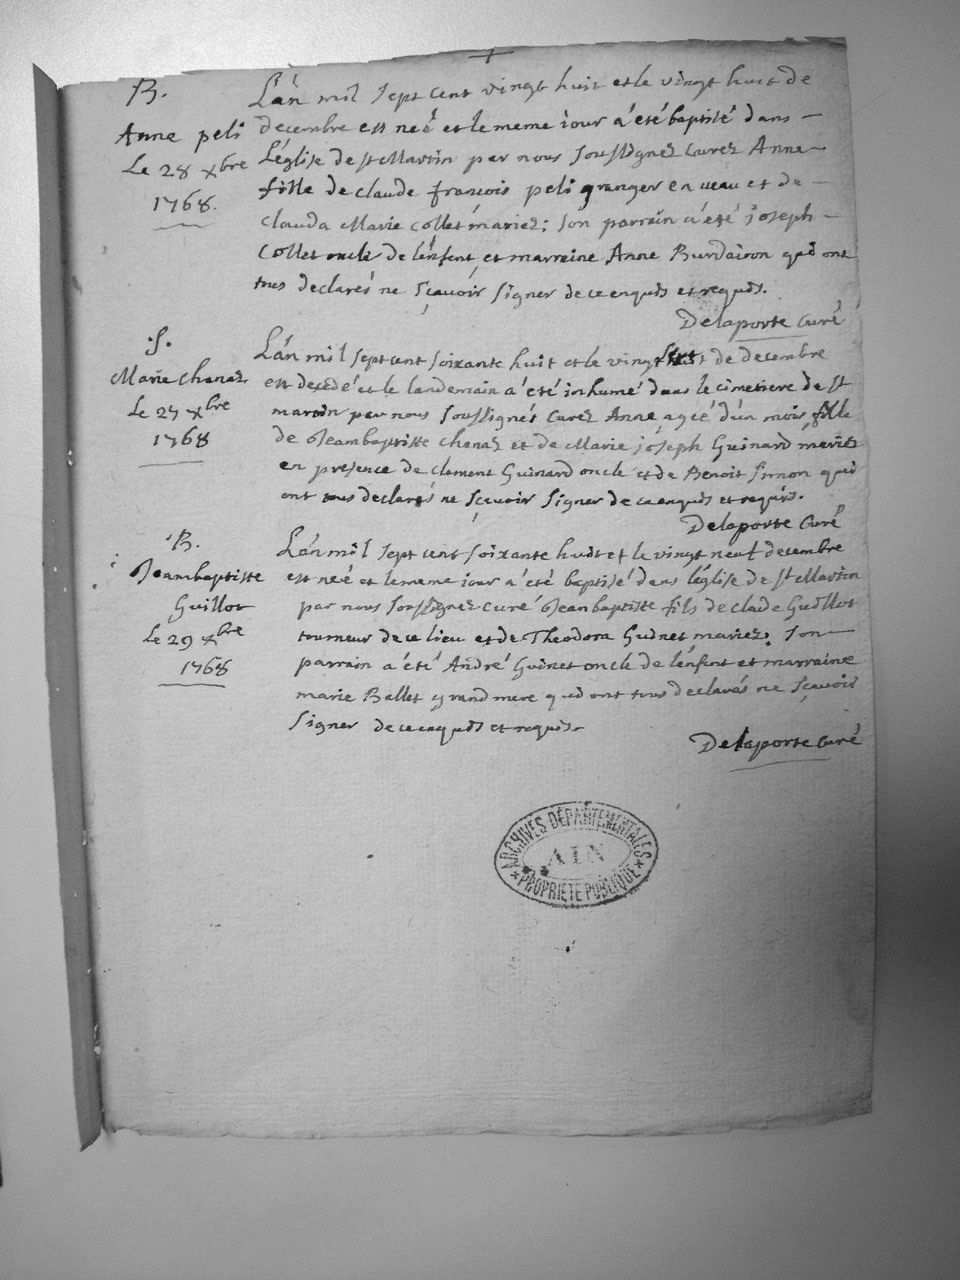 B.
Anne peli
Le 28 xbre
1768.
L'an mil sept cent vingt huit et le vingt huit de
decembre est neé et le meme iour a été baptisé dans
L'église de st Martin par nous soussignez curez Anne
fille de claude francois peli granger en veau et de
clauda Marie collet mariez; son parrain a été joseph
Collet oncle de lenfent et marreine Anne Burdairon qui ont
tous declarés ne sçavoir signer de ce enquis et requis.
Delaporte Curé
S.
Marie Chanaz
Le 27 xbre
1768
L'an mil sept cent soixante huit et le vingt sept de decembre
est decedé et le landemain a été inhumé dans le cimetiere de st
martin par nous soussignés curez Anne agée d'un mois fille
de Jeambaptiste chanaz et de Marie joseph Guinard mariez
en presence de clement Guinard oncle et de Benoit simon qui
ont tous declarés ne sçavoir signer de ce enquis et requis.
Delaporte Curé
B.
Jeambaptiste
Guillot
Le 29 xbre
1768
L'an mil sept cent soixante huit et le vingt neuf decembre
est neé et le meme iour a été baptisé dans léglise de st Martin
par nous soussignez curé Jeanbaptiste fils de claude Guillot
tourneur de ce lieu et de Theodora Guinet mariez. son
parrain a été André Guinet oncle de lenfent et marraine
marie Ballet grand mere qui ont tous declarés ne sçavoir
signer de ce enquis et requis.
Delaporte Curé
ARCHIVES DÉPARTEMENTALES
AIN
* PROPRIETE PUBLIQUE *